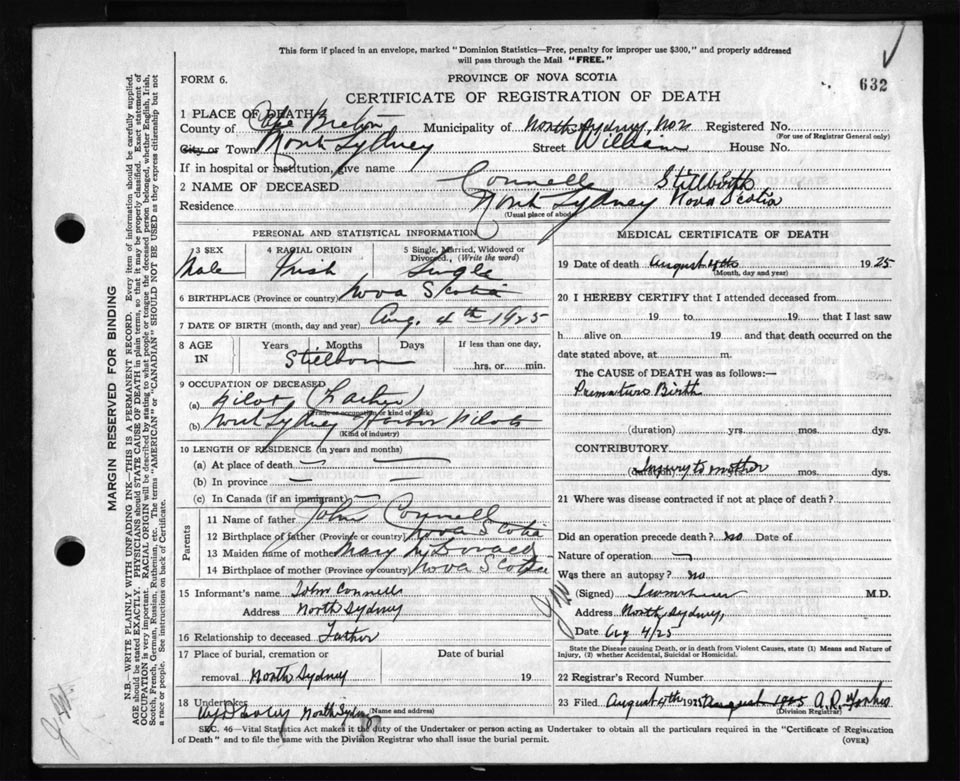 This form if placed in an envelope, marked "Dominion Statistics—Free, penalty for improper use $300," and properly addressed
will pass through the Mail "FREE."
FORM 6.
PROVINCE OF NOVA SCOTIA
632
CERTIFICATE OF REGISTRATION OF DEATH
1 PLACE OF DEATH
County of Cape Breton Municipality of North Sydney, No 2 Registered No.
(For use of Registrar General only)
City or Town North Sydney Street William House No.
If in hospital or institution, give name
2 NAME OF DECEASED Connell Stillbirth
Residence North Sydney Nova Scotia
(Usual place of abode)
PERSONAL AND STATISTICAL INFORMATION
3 SEX 4 RACIAL ORIGIN 5 Single, Married, Widowed or
Divorced, (Write the word)
Male Irish Single
6 BIRTHPLACE (Province or country) Nova Scotia
7 DATE OF BIRTH (month, day and year) Aug. 4th 1925
8 AGE Years Months Days If less than one day,
IN Stillborn hrs. or min.
9 OCCUPATION OF DECEASED
(a) Pilot (Father)
(Trade or occupation or kind of work)
(b) North Sydney Harbor Pilots
(Kind of industry)
10 LENGTH OF RESIDENCE (in years and months)
(a) At place of death —
(b) In province —
(c) In Canada (if an immigrant) —
Parents
11 Name of father John Connell
12 Birthplace of father (Province or country) Nova Scotia
13 Maiden name of mother Mary McDonald
14 Birthplace of mother (Province or country) Nova Scotia
15 Informant's name John Connell
Address North Sydney
16 Relationship to deceased Father
17 Place of burial, cremation or Date of burial
removal North Sydney 19
18 Undertaker North Sydney
(Name and address)
MEDICAL CERTIFICATE OF DEATH
19 Date of death August 4th 1925
(Month, day and year)
20 I HEREBY CERTIFY that I attended deceased from
19 to 19 that I last saw
h alive on 19 and that death occurred on the
date stated above, at m.
The CAUSE of DEATH was as follows:—
Premature Birth
(duration) yrs. mos. dys.
CONTRIBUTORY
Injury to mother
(duration) yrs. mos. dys.
21 Where was disease contracted if not at place of death?
Did an operation precede death? no Date of
Nature of operation —
Was there an autopsy? no
(Signed) M.D.
Address North Sydney,
Date Aug 4/25
State the Disease causing Death, or in death from Violent Causes, state (1) Means and Nature of
Injury, (2) whether Accidental, Suicidal or Homicidal.
22 Registrar's Record Number
23 Filed August 4th 1925 August 1925 A. R. Forbes
(Division Registrar)
SEC. 46—Vital Statistics Act makes it the duty of the Undertaker or person acting as Undertaker to obtain all the particulars required in the "Certificate of Registration
of Death" and to file the same with the Division Registrar who shall issue the burial permit.
(OVER)
MARGIN RESERVED FOR BINDING
N.B.—WRITE PLAINLY WITH UNFADING INK—THIS IS A PERMANENT RECORD. Every item of information should be carefully supplied.
AGE should be stated EXACTLY. PHYSICIANS should STATE CAUSE OF DEATH in plain terms, so that it may be properly classified. Exact statement of
OCCUPATION is very important. RACIAL ORIGIN will be described by stating to what people or tongue the deceased person belonged, whether English, Irish,
Scotch, French, German, Russian, Ruthenian, etc. The terms "AMERICAN" or "CANADIAN" SHOULD NOT BE USED as they express citizenship but not
a race or people. See instructions on back of Certificate.